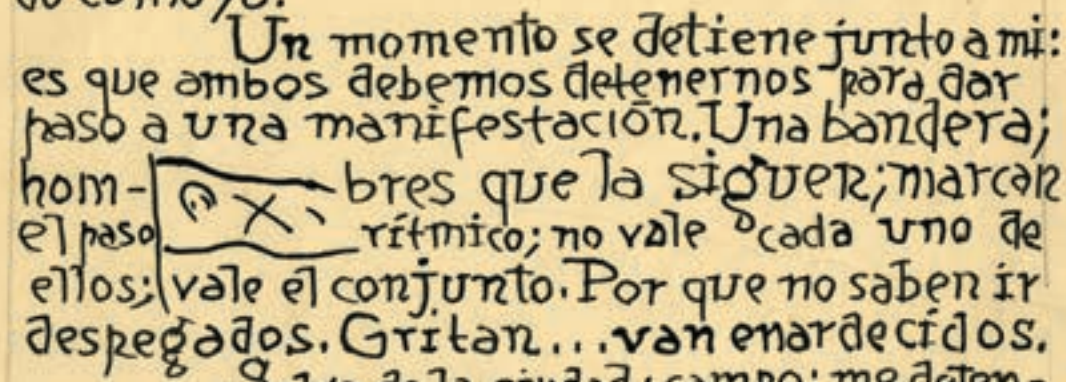 Un momento se detiene junto a mi:
es que ambos debemos detenernos para dar
paso a una manifestación. Una bandera;
hom- bres que la siguen; marcan
el paso rítmico; no vale cada uno de
ellos; vale el conjunto. Por que no saben ir
despegados. Gritan... van enardecidos.